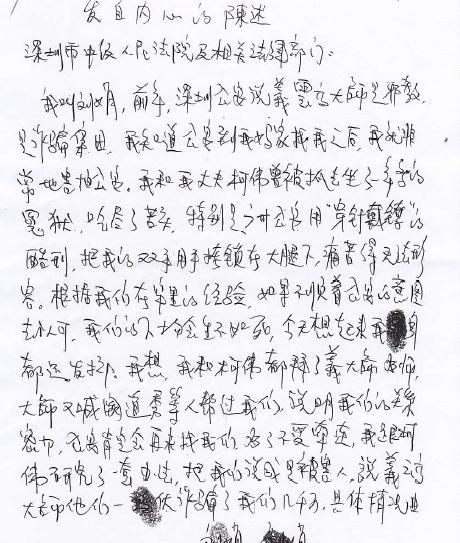 发自内心的陳述
深圳市中级人民法院及相关法律部门:
我叫刘娟,前年,深圳公安说義雲高大師是邪教,
是诈骗集团,我知道公安到我妈家找我之后,我就非
常地害怕公安。我和我丈夫柯偉曾被抓去坐了一年多的
冤狱,吃尽了苦头,特别是公安用“穿针戴镣”的
酷刑,把我的双手用手挎锁在大腿下,痛苦得无法形
容。根据我们在牢里的经验,如果不顺着公安的意图
去认可,我们的下场会生不如死,今天想起来我身
都还发抖。我想,我和柯偉都拜了義大師為师,
大師又喊国道勇等人帮过我们,说明我们的关系
密切,公安肯定会再来找我们,为了不受牵连,我跟柯
偉研究了一套办法,把我们说成是被害人,说義雲高
大師他们一伙诈骗了我们几千万,具体情况由